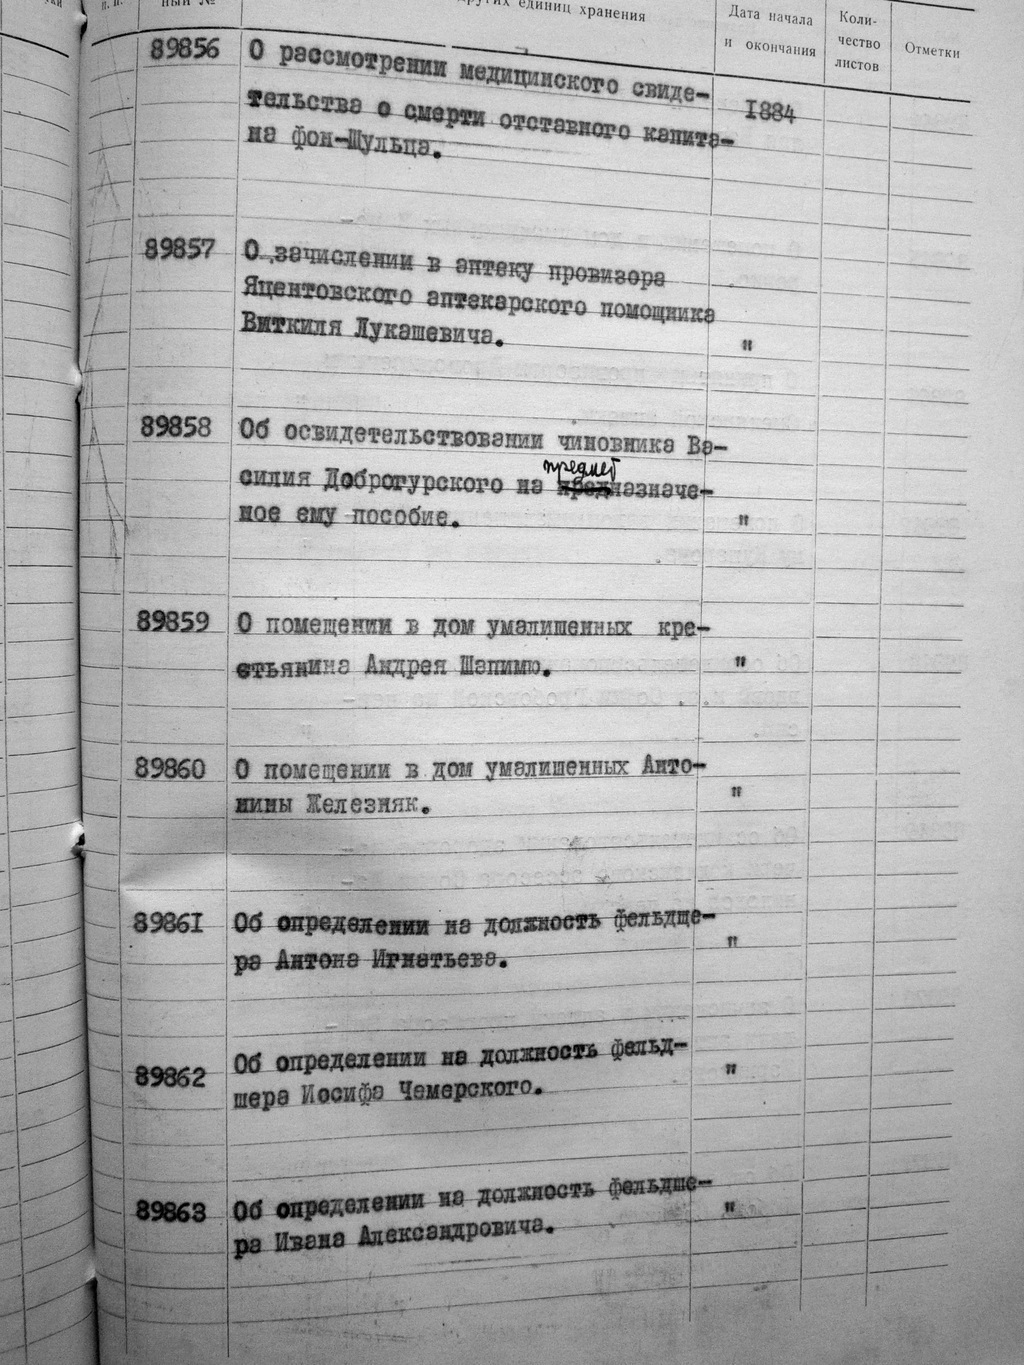 п. п.
ный №
других единиц хранения
Дата начала
и окончания
Коли-
чество
листов
Отметки
89856
О рассмотрении медицинского свиде-
тельства о смерти отставного капита-
на фон-Шульца.
1884
89857
О зачислении в аптеку провизора
Яцентовского аптекарского помощника
Виткиля Лукашевича.
"
89858
Об освидетельствовании чиновника Ва-
предмет
силия Доброгурского на предназначе-
ное ему пособие.
"
89859
О помещении в дом умалишенных кре-
стьянина Андрея Шапимю.
"
89860
О помещении в дом умалишенных Анто-
нины Железняк.
"
8986I
Об определении на должность фельдше-
ра Антона Игнатьева.
"
89862
Об определении на должность фельд-
шера Иосифа Чемерского.
"
89863
Об определении на должность фельдше-
ра Ивана Александровича.
"